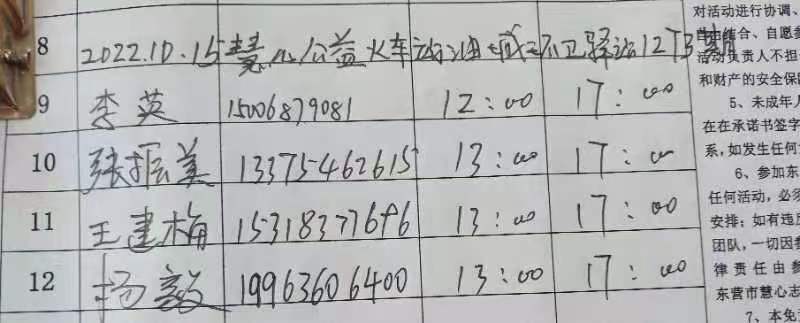 8 2022.10.15慧心公益火车站油城环卫驿站12下期
9 李英 15006879081 12:00 17:00
10 张振美 13375462615 13:00 17:00
11 王建梅 15318377696 13:00 17:00
12 杨毅 19963606400 13:00 17:00
对活动进行协调、
结合、自愿参
活动负责人不担
和财产的安全保
5、未成年人
在在承诺书签字
系,如发生任何
6、参加东
任何活动,必须
安排;如有违反
团队,一切因参
律责任由参
东营市慧心志
7、本免